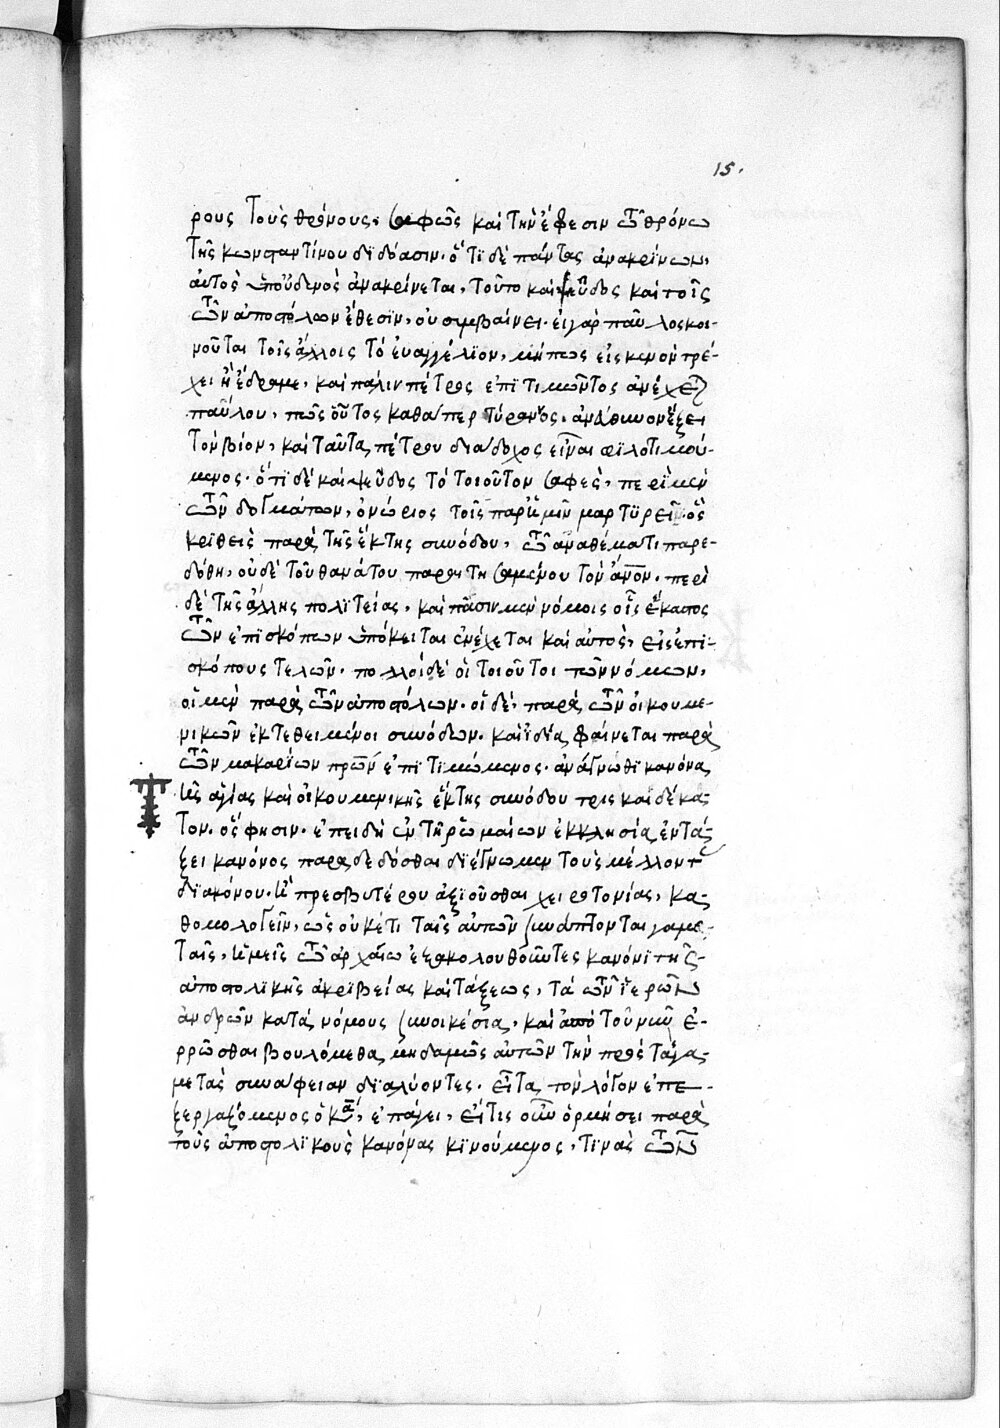 15.
ρους τοὺς θρόνους. σαφῶς καὶ τὴν ἔφεσιν τῶ θρόνω
τῆς κωνσταντίνου διδόασιν. ὅτι δὲ πάντας ἀνακρίνων,
αὐτὸς ὑπ' οὐδενὸς ἀνακρίνεται, τοῦτο καὶ ψεῦδος καὶ τοῖς
τῶν ἀποστόλων ἔθεσιν, οὐ συμβαίνει. εἰ γὰρ παῦλος κοι-
νοῦται τοῖς ἄλλοις τὸ ἐυαγγέλιον, μήπως εἰς κενὸν τρέ-
χει ἢ ἔδραμε, καὶ πάλιν πέτρος ἐπιτιμῶντος ἀνέχεται
παύλου, πῶς οὗτος καθάπερ τύραννος, ἀνεύθυνον ἕξει
τὸν βίον, καὶ ταῦτα πέτρου διάδοχος εἶναι φιλοτιμού-
μενος. ὅτι δὲ καὶ ψεῦδος τὸ τοιοῦτον σαφὲς, περὶ μὲν
τῶν δογμάτων, ὀνώριος τοῖς παρ' ἡμῖν μαρτυρεῖ. ὃς
κριθεὶς παρὰ τῆς ἕκτης συνόδου, τῶ ἀναθέματι παρε-
δόθη, οὐδὲ τοῦ θανάτου παραιτησαμένου τὸν ἄνον. περὶ
δὲ τῆς ἄλλης πολιτείας, καὶ πᾶσιν μὲν νόμοις οἷς ἕκαστος
τῶν ἐπισκόπων ὑπόκειται ἐνέχεται καὶ αὐτὸς, εἰς ἐπι-
σκόπους τελῶν. πολλοὶ δὲ οἱ τοιοῦτοι τῶν νόμων,
οἱ μὲν παρὰ τῶν ἀποστόλων. οἱ δὲ, παρὰ τῶν οἰκουμε-
νικῶν ἐκτεθειμένοι συνόδων. καὶ ἰδία φαίνεται παρὰ
τῶν μακαρίων πρων ἐπιτιμώμενος. ἀνάγνωθι κανόνα
τῆς ἁγίας καὶ οἰκουμενικῆς ἕκτης συνόδου τρισκαιδέκα-
τον. ὅς φησιν. ἐπειδὴ ἐν τῆ ῥωμαίων ἐκκλησία ἐν τά-
ξει κανόνος παραδεδόσθαι διέγνωμεν τοὺς μέλλοντ
διακόνου. ἢ πρεσβυτέρου ἀξιοῦσθαι χειροτονίας, κα-
θομολογεῖν, ὡς οὐκέτι ταῖς αὐτῶν συνάπτονται γαμε-
ταῖς, ἡμεῖς τῶ ἀρχαίω ἐξακολουθοῦντες κανόνι τῆς
ἀποστολικῆς ἀκριβείας καὶ τάξεως, τὰ τῶν ἱερῶν
ἀνδρῶν κατὰ νόμους συνοικέσια, καὶ ἀπὸ τοῦ νῦν ἐ-
ρρῶσθαι βουλόμεθα, μηδαμῶς αὐτῶν τὴν πρὸς τὰ γα-
μετὰς συνάφειαν διαλύοντες. εἶτα τὸν λόγον ἐπε-
ξεργαζόμενος ὁ κὰ, ἐπάγει, εἴ τις οὖν ὁρμήσει παρὰ
τοὺς ἀποστολικοὺς κανόνας κινούμενος, τινὰς τῶν